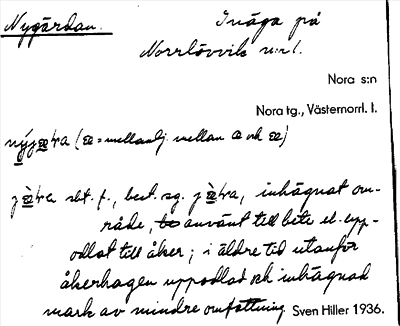 Nygärdan.
Inäga på
Norrlövvik n:r 1.
Nora s:n
Nora tg., Västernorrl. l.
(æ = mellanlj. mellan a och æ)
slt. f., best. sg. , inhägnat om-
råde, använt till bete el. upp-
odlat till åker; i äldre tid utanför
åkerhagen uppodlad och inhägnad
mark av mindre omfattning. Sven Hiller 1936.